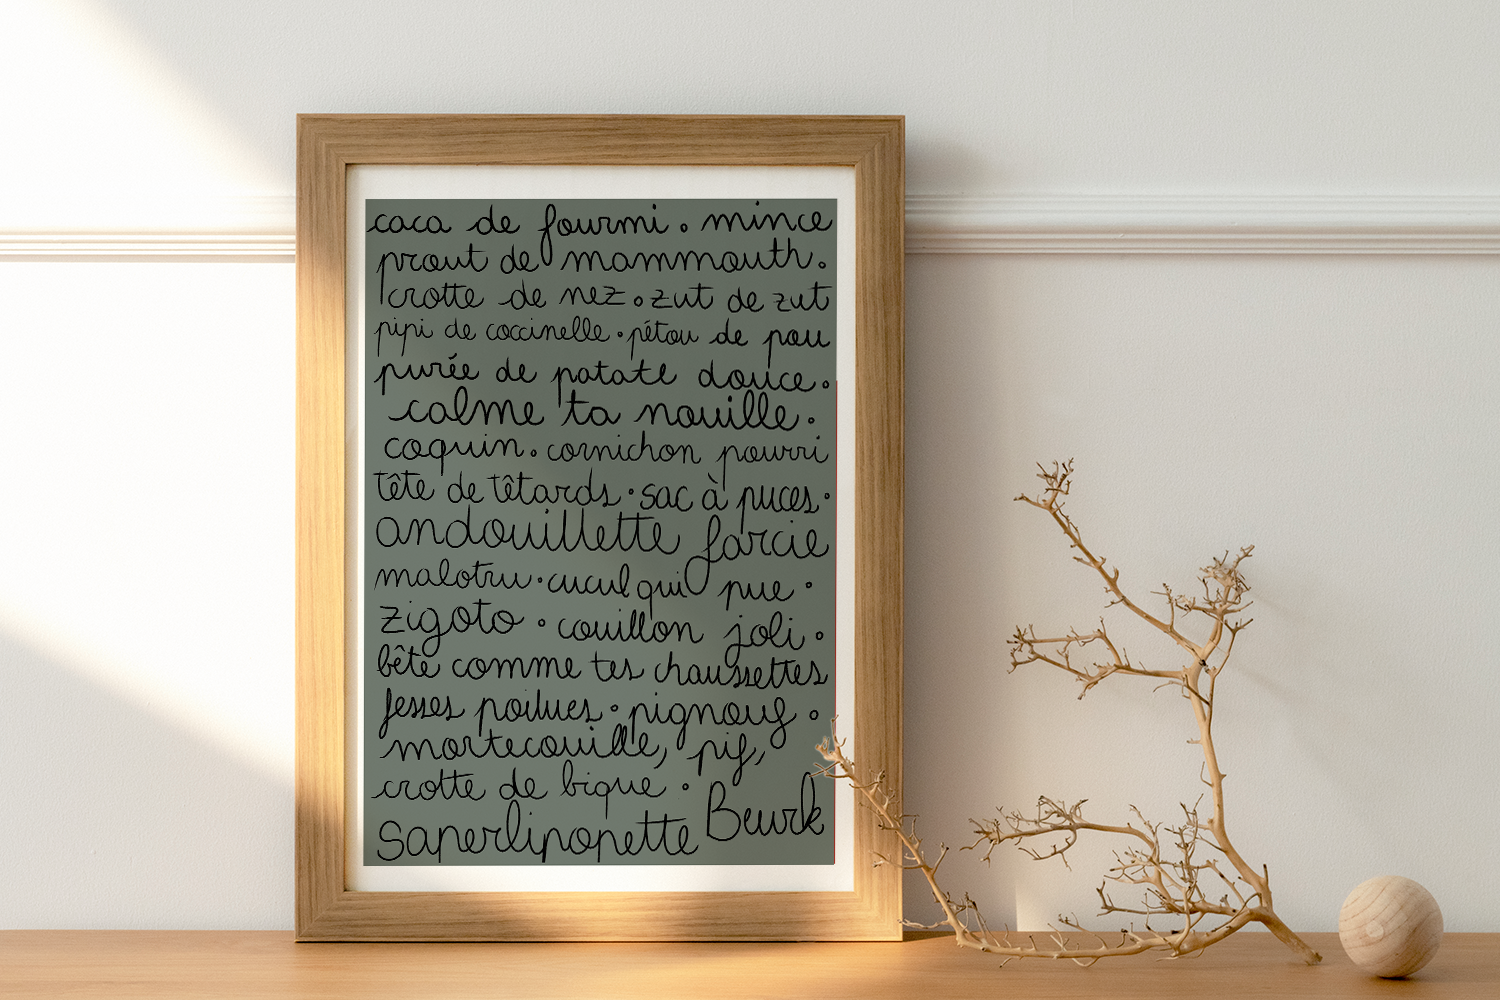 caca de fourmi. mince
prout de mammouth.
crotte de nez. zut de zut
pipi de coccinelle. pétou de pou
purée de patate douce.
calme ta nouille.
coquin. cornichon pourri
tête de têtards. sac à puces.
andouillette farcie
malotru. cucul qui pue.
zigoto. couillon joli.
bête comme tes chaussettes
fesses poilues. pignouf.
mortecouille, pif,
crotte de bique.
saperlipopette Beurk